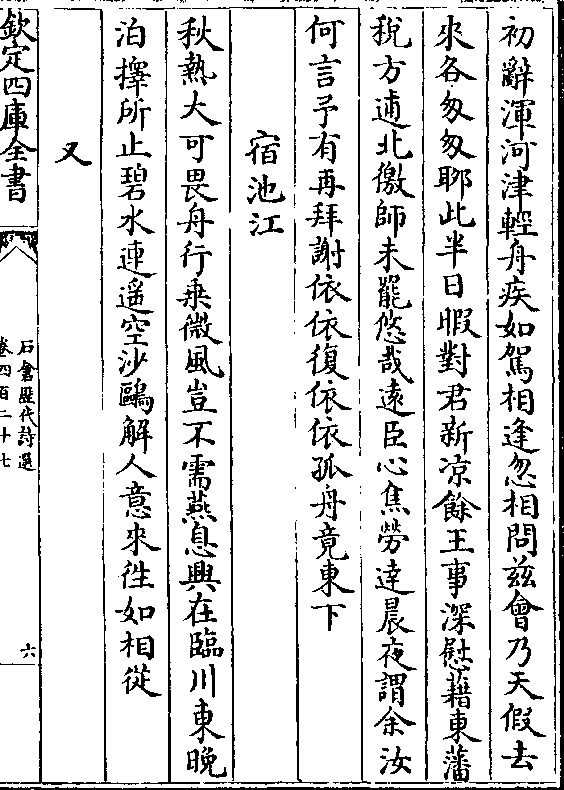 初辭渾河津輕舟疾如駕相逢忽相問兹會乃天假去
來各匆匆聊此半日暇對君新凉餘王事深慰藉東藩
稅方逋北儌師未罷悠哉遠臣心焦勞達晨夜謂余汝
何言予有再拜謝依依復依依孤舟竟東下
宿池江
秋熱大可畏舟行乗微風豈不需燕息興在臨川東晚
泊擇所止碧水連遥空沙鷗解人意來徃如相從
又
欽定四庫全書
石倉歴代詩選
卷四百二十七
六